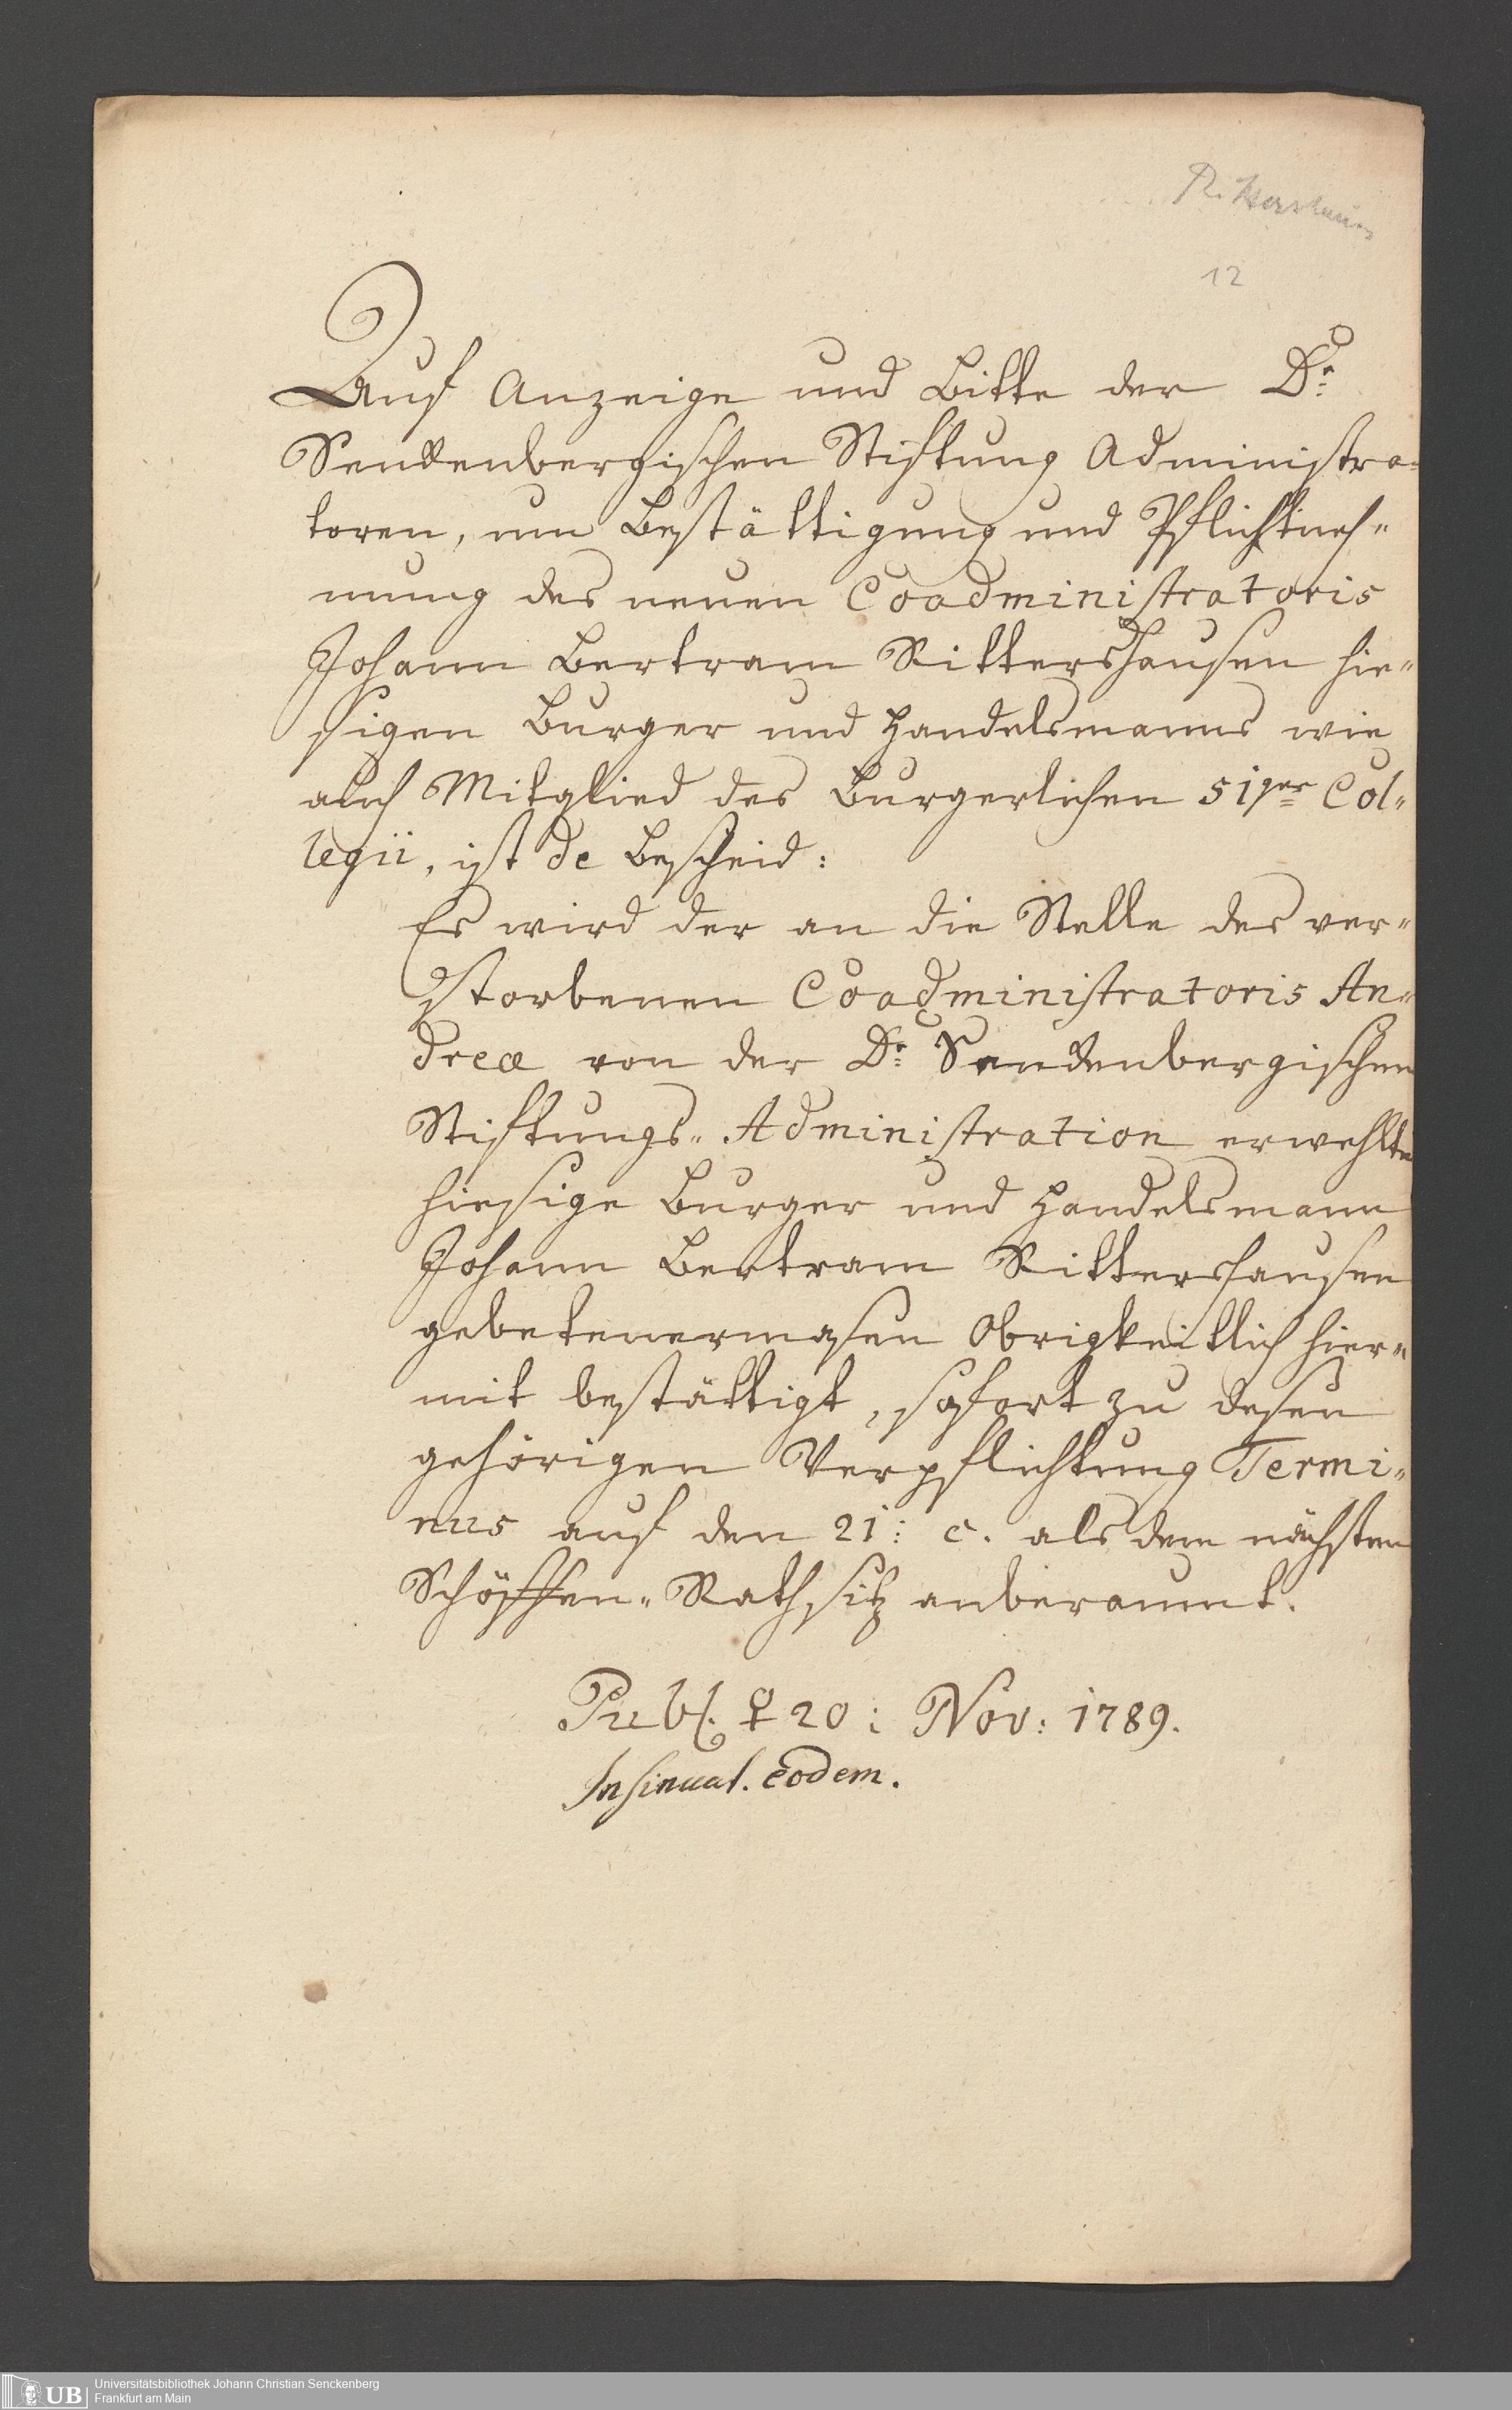 12
Auf Anzeige und Bitte der Dr.
Senckenbergischen Stiftung Administra-
toren, um Bestättigung und Pflichtneh-
mung des neuen Coadministratoris
Johann Bertram Rittershausen hie-
sigen Burger und Handelsmanns wie
auch Mitglied des Burgerlichen 51ger Col-
legii, ist de Bescheid:
Es wird der an die Stelle des ver-
storbenen Coadministratoris An-
dreæ von der Dr. Senckenbergischen
Stiftungs-Administration erwehlte
hiesige Burger und Handelsmann
Johann Bertram Rittershausen
gebetenermasen Obrigkeitlich hier-
mit bestättigt, sofort zu desen
gehörigen Verpflichtung Termi-
nus auf den 21: c. als dem nächsten
Schöffen-Rathsitz anberaumt.
Publ. ♀ 20: Nov: 1789.
Insinuat. eodem.
UB
Universitätsbibliothek Johann Christian Senckenberg
Frankfurt am Main